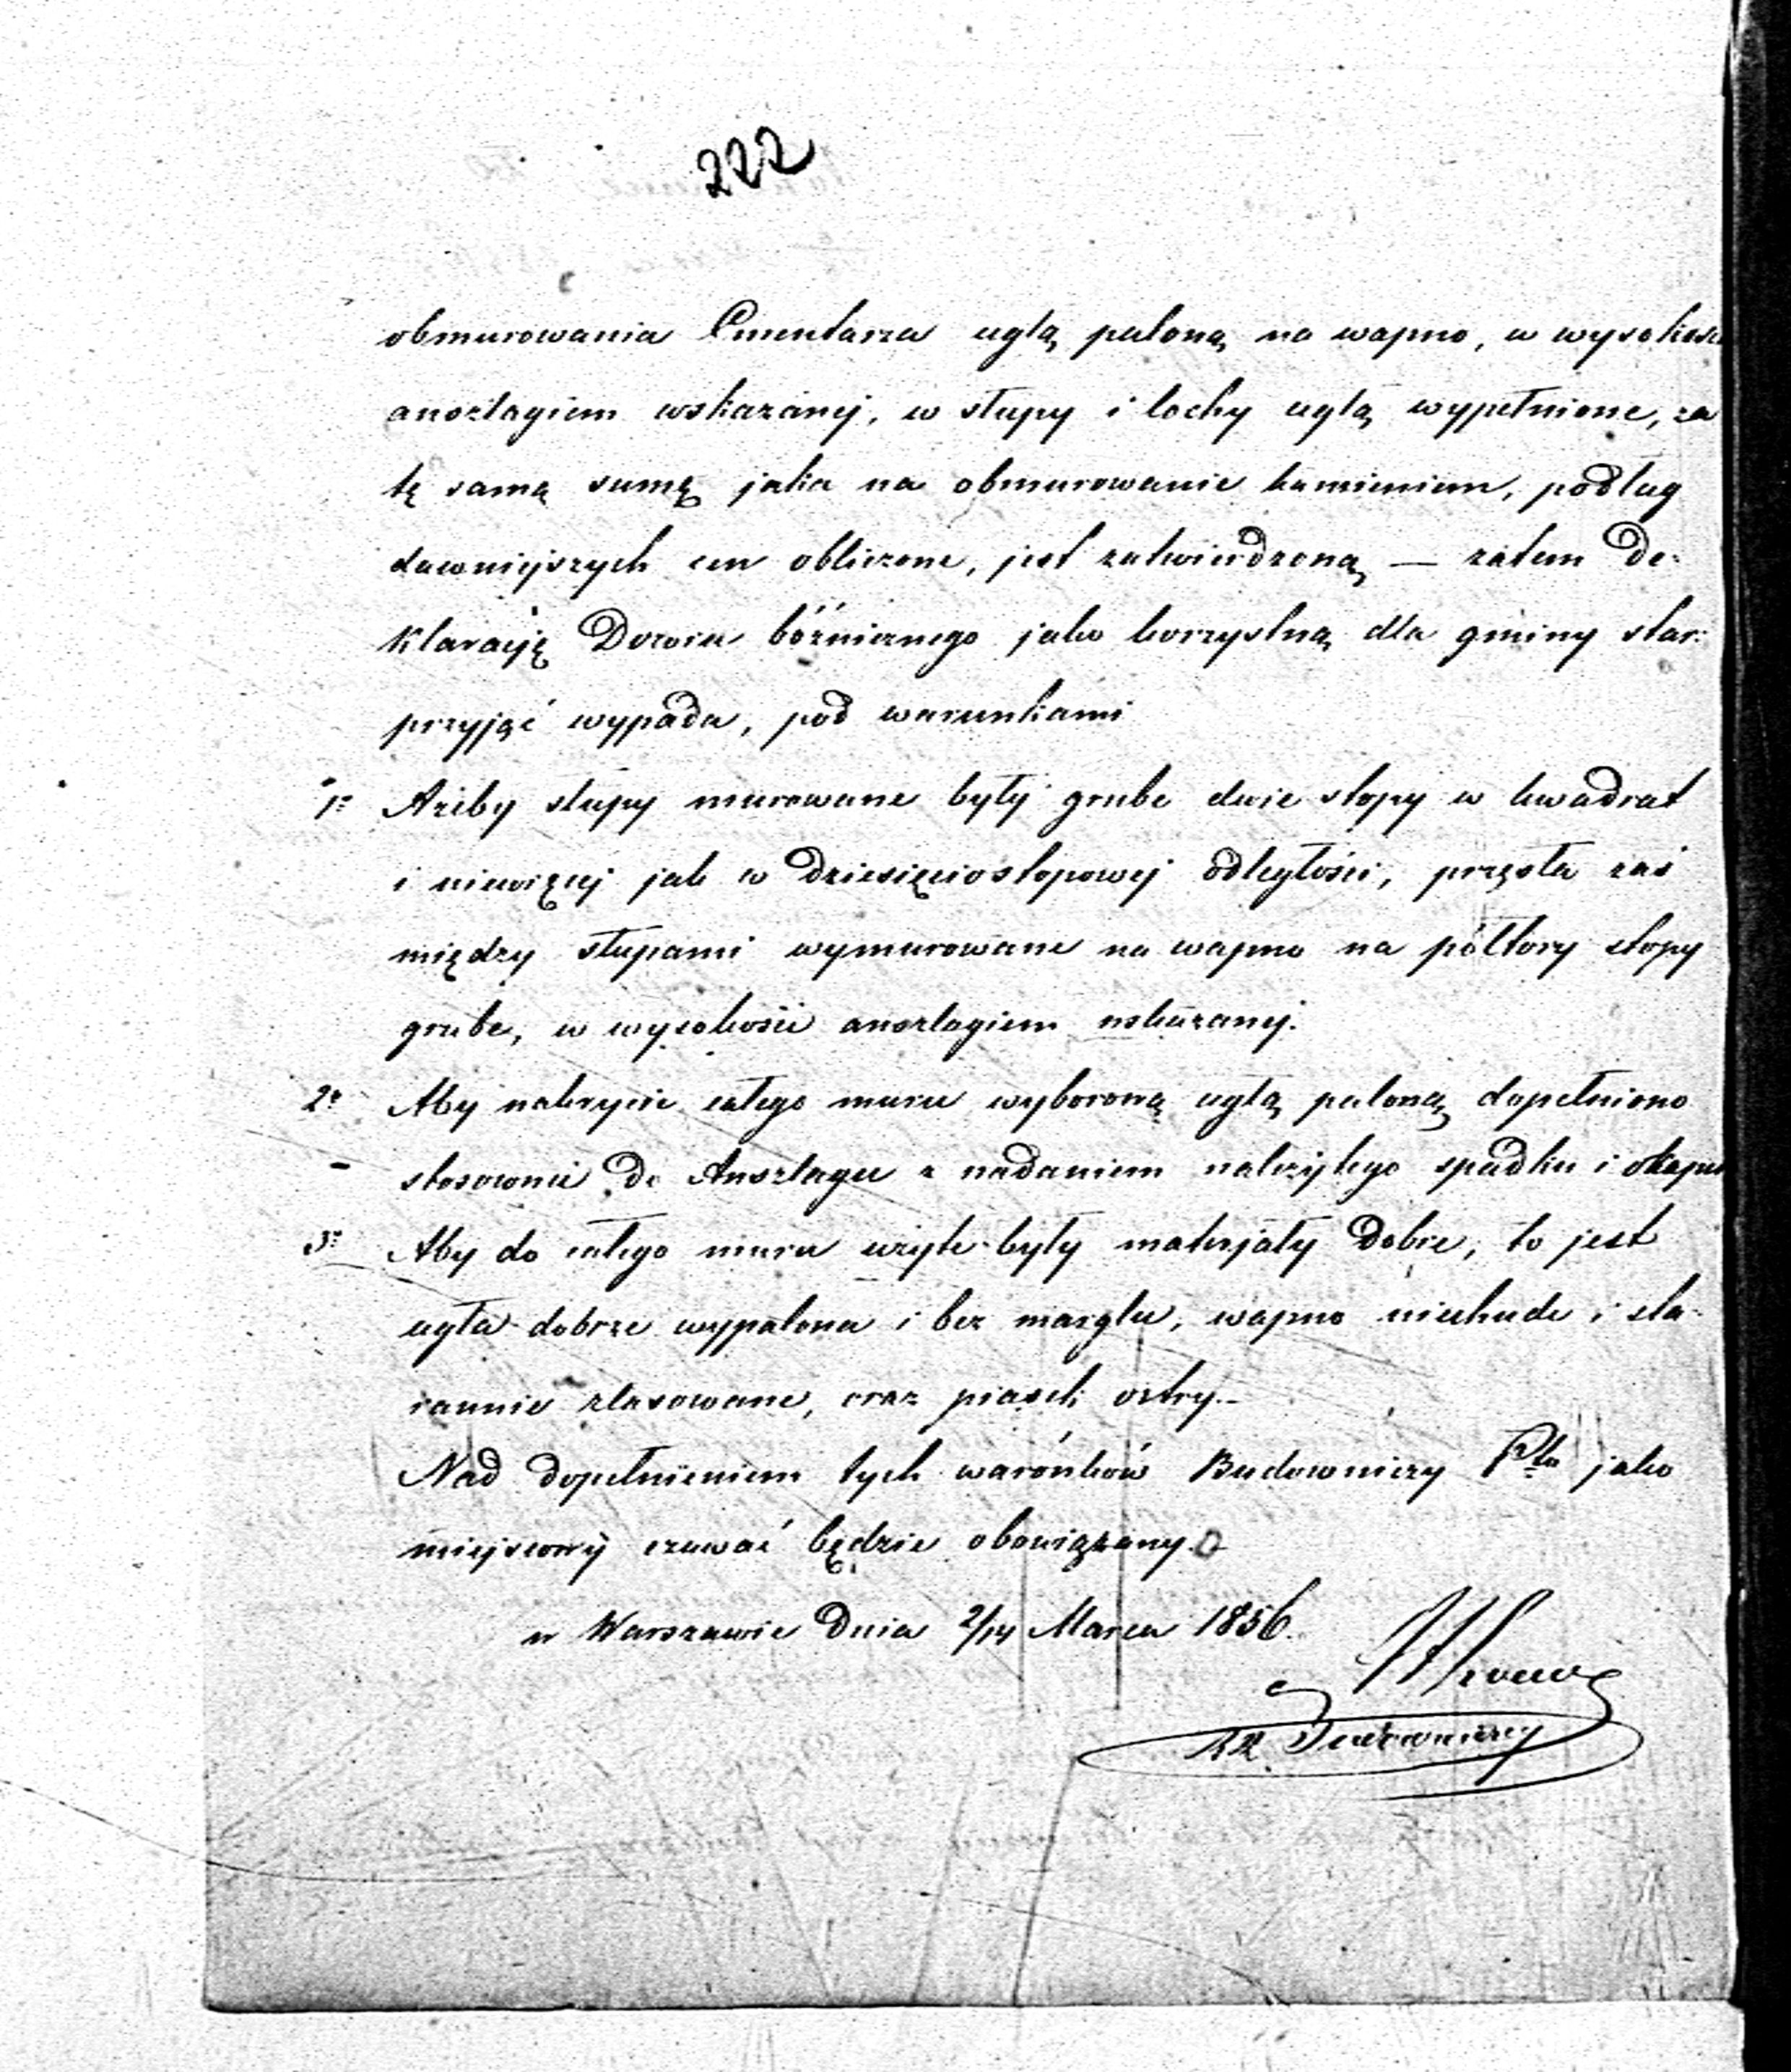 222
obmurowania Cmentarza cegłą paloną na wapno, w wysokości
anszlagiem wskazanej, w słupy i lochy cegłą wypełnione, za
tę samą sumę jaka na obmurowanie kamieniem, podług
dawniejszych cen obliczone, jest zatwierdzoną — zatem De-
klaracyję Dozoru bóźnicznego jako korzystną dla gminy star:
przyjąć wypada, pod warunkami
1º Ażeby słupy murowane były grube dwie stopy w kwadrat
i niewięcej jak w dziesięciostopowej odległości, przęsła zaś
między słupami wymurowane na wapno na półtory stopy
grube, w wysokości anszlagiem wskazanej.
2º Aby nakrycie całego muru wyborową cegłą paloną dopełniono
stosownie do Anszlagu z nadaniem należytego spadku i okapu
3º Aby do całego muru użyte były materjały dobre, to jest
cegła dobrze wypalona i bez marglu, wapno niechude i sta-
rannie zlasowane, oraz piasek ostry.—
Nad dopełnieniem tych warónków Budowniczy Ptu jako
miejscowy czuwać będzie obowiązany.
w Warszawie Dnia 2/14 Marca 1856.
Budowniczy